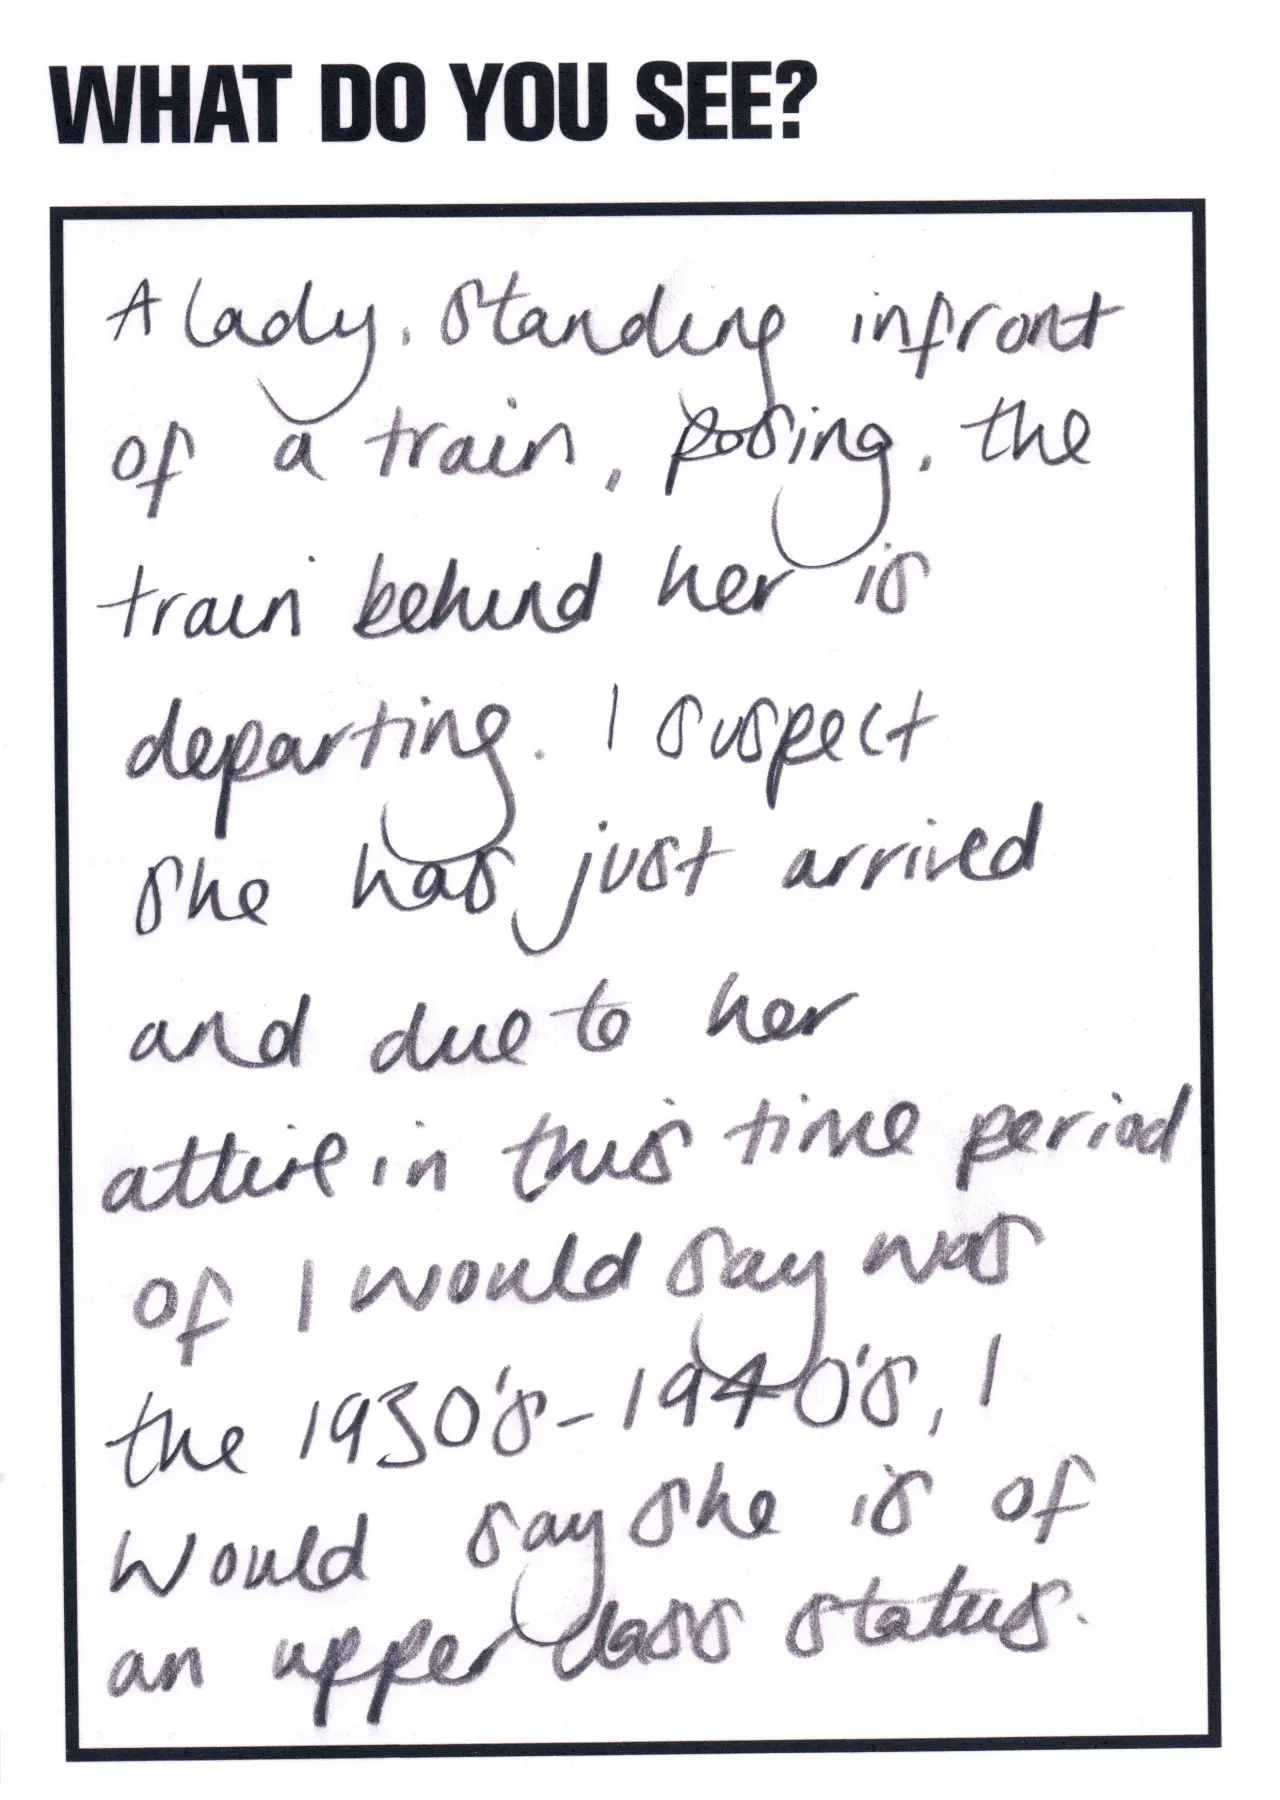 WHAT DO YOU SEE?
A lady, standing infront
of a train, posing, the
train behind her is
departing. I suspect
she has just arrived
and due to her
attire in this time period
of I would say was
the 1930's-1940's, I
would say she is of
an upper class status.